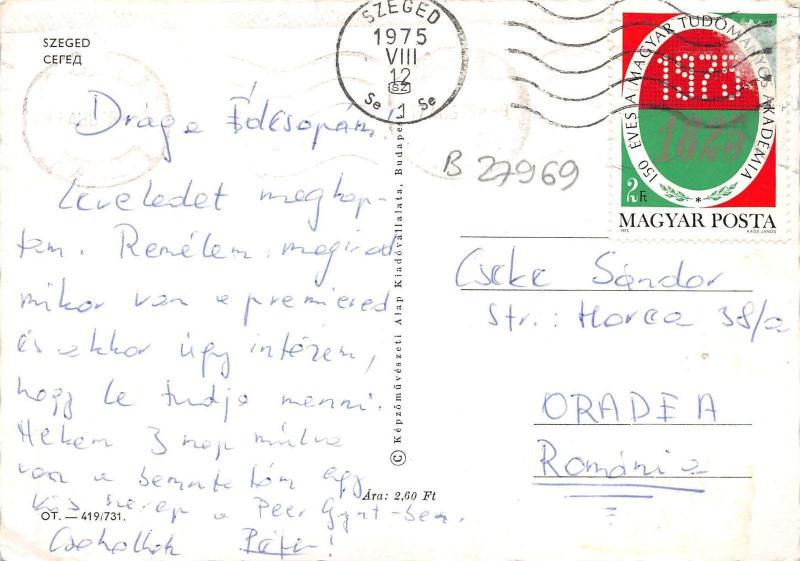 SZEGED
СЕГЕД
SZEGED
1975
VIII
12
SZ
Se 1 Se
150 ÉVES A MAGYAR TUDOMÁNYOS AKADÉMIA
1975
1825
2 Ft
MAGYAR POSTA
1975 KASS JÁNOS
B 27969
Drága Édesapám!
Leveledet megkap-
tam. Remélem megirod
mikor van a premiered
és akkor úgy intézem,
hogy le tudja menni.
Nekem 3 nap múlva
van a bemutatóm egy
kis szerep a Peer Gynt-ben.
Csokollak
Cseke Sándor
Str.: Horea 38/a
ORADEA
Románia
© Képzőművészeti Alap Kiadóvállalata, Budapest
Ára: 2,60 Ft
OT. — 419/731.